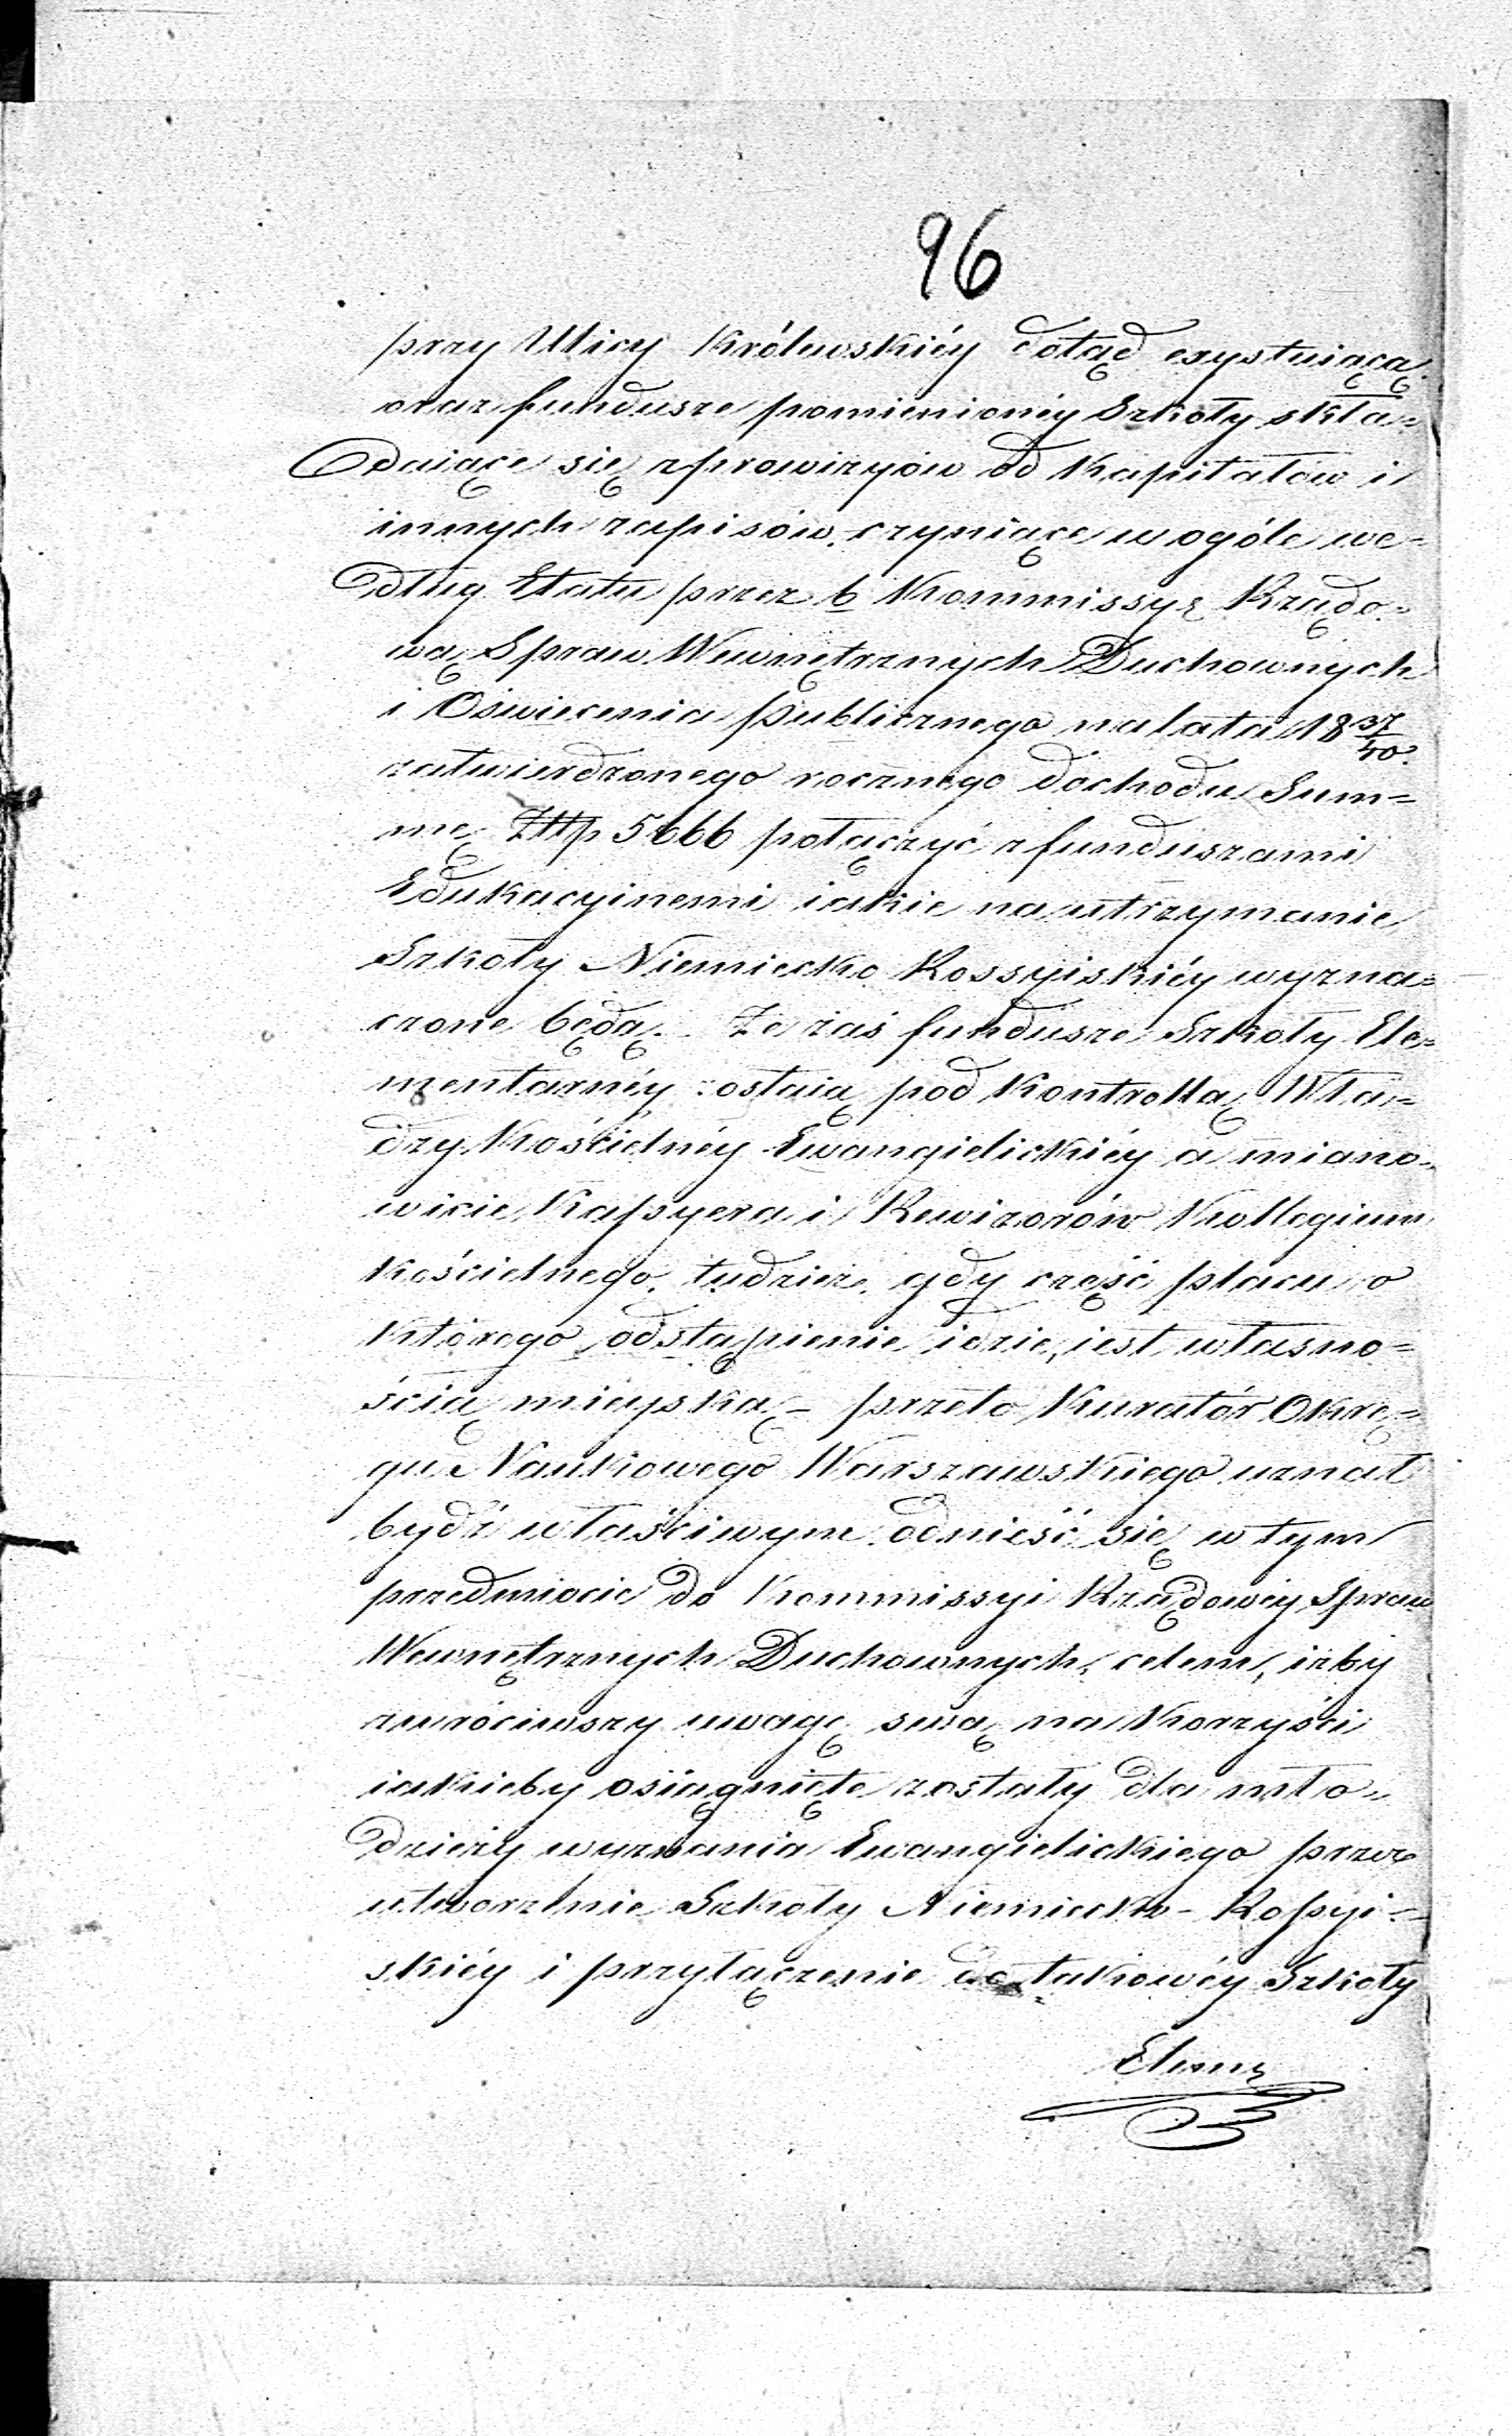 96
przy Ulicy Królewskiéy dotąd exystuiącą
oraz fundusze pomienionéy Szkoły skła=
daiące się z prowizyów od Kapitałow i
innych zapisów, czyniące w ogóle we=
dług Etatu przez b Kommissyę Rządo=
wą Spraw Wewnętrznych Duchownych
i Oświecenia Publicznego na lata 18 37/40.
zatwierdzonego rocznego dochodu Sum=
mę Złłp 5666 połączyć z funduszami
Edukacyinemi iakie na utrzymanie
Szkoły Niemiecko Rossyiskiéy wyzna=
czone będą. Że zaś fundusze Szkoły Ele=
mentarnéy zostaią pod Kontrollą Wła=
dzy Kościelnéy Ewangielickiéy a miano=
wicie Kassyera i Rewizorów Kollegium
Kościelnego, tudzież, gdy część placu o
którego odstąpienie idzie, iest własno=
ścią mieyską – przeto Kurator Okrę=
gu Naukowego Warszawskiego uznał
bydź właściwym odnieść się w tym
przedmiocie do Kommissyi Rządowéy Spraw
Wewnętrznych Duchownych, celem, iżby
zwróciwszy uwagę swą na Korzyści
iakieby osiągnięte zostały dla mło=
dzieży wyznania Ewangielickiego przez
utworzenie Szkoły Niemiecko-Rossyi=
skiéy i przyłączenie do takowéy Szkoły
Elem